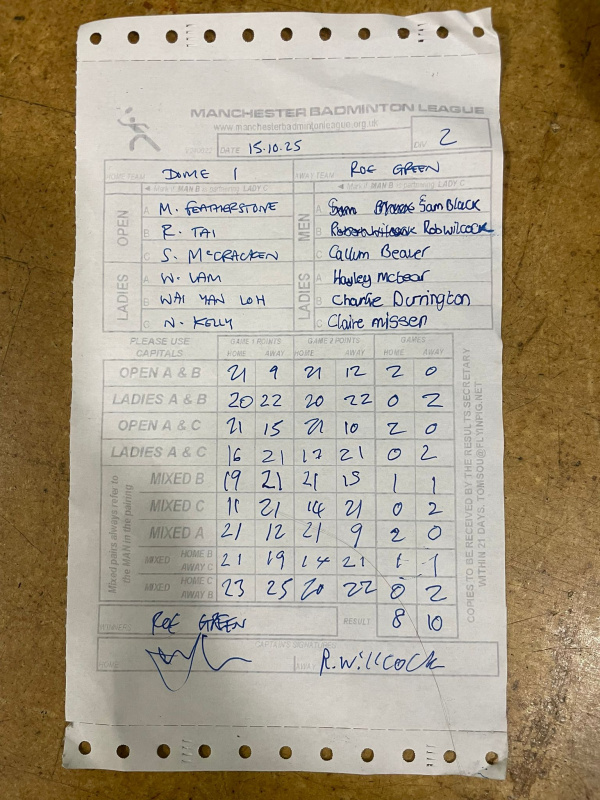 MANCHESTER BADMINTON LEAGUE
www.manchesterbadmintonleague.org.uk
DATE 15.10.25 DIV 2
HOME TEAM DOME 1 AWAY TEAM ROE GREEN
◄ Mark if MAN B is partnering LADY C ◄ Mark if MAN B is partnering LADY C
OPEN MEN
A M. FEATHERSTONE A Sam Black
B R. TAI B Rob Wilcock
C S. McCRACKEN C Callum Beaver
LADIES LADIES
A W. LAM A Hayley McTear
B WAI YAN LOH B Charlie Durrington
C N. KELLY C Claire Missen
PLEASE USE CAPITALS GAME 1 POINTS GAME 2 POINTS GAMES
HOME AWAY HOME AWAY HOME AWAY
OPEN A & B 21 9 21 12 2 0
LADIES A & B 20 22 20 22 0 2
OPEN A & C 21 15 21 10 2 0
LADIES A & C 16 21 17 21 0 2
Mixed pairs always refer to the MAN in the pairing
MIXED B 19 21 21 15 1 1
MIXED C 11 21 14 21 0 2
MIXED A 21 12 21 9 2 0
MIXED HOME B AWAY C 21 19 14 21 1 1
MIXED HOME C AWAY B 23 25 20 22 0 2
WINNER ROE GREEN RESULT 8 10
CAPTAIN'S SIGNATURE
HOME AWAY R. Willcock
COPIES TO BE RECEIVED BY THE RESULTS SECRETARY
WITHIN 21 DAYS. TOMSOU@FLYINPIG.NET